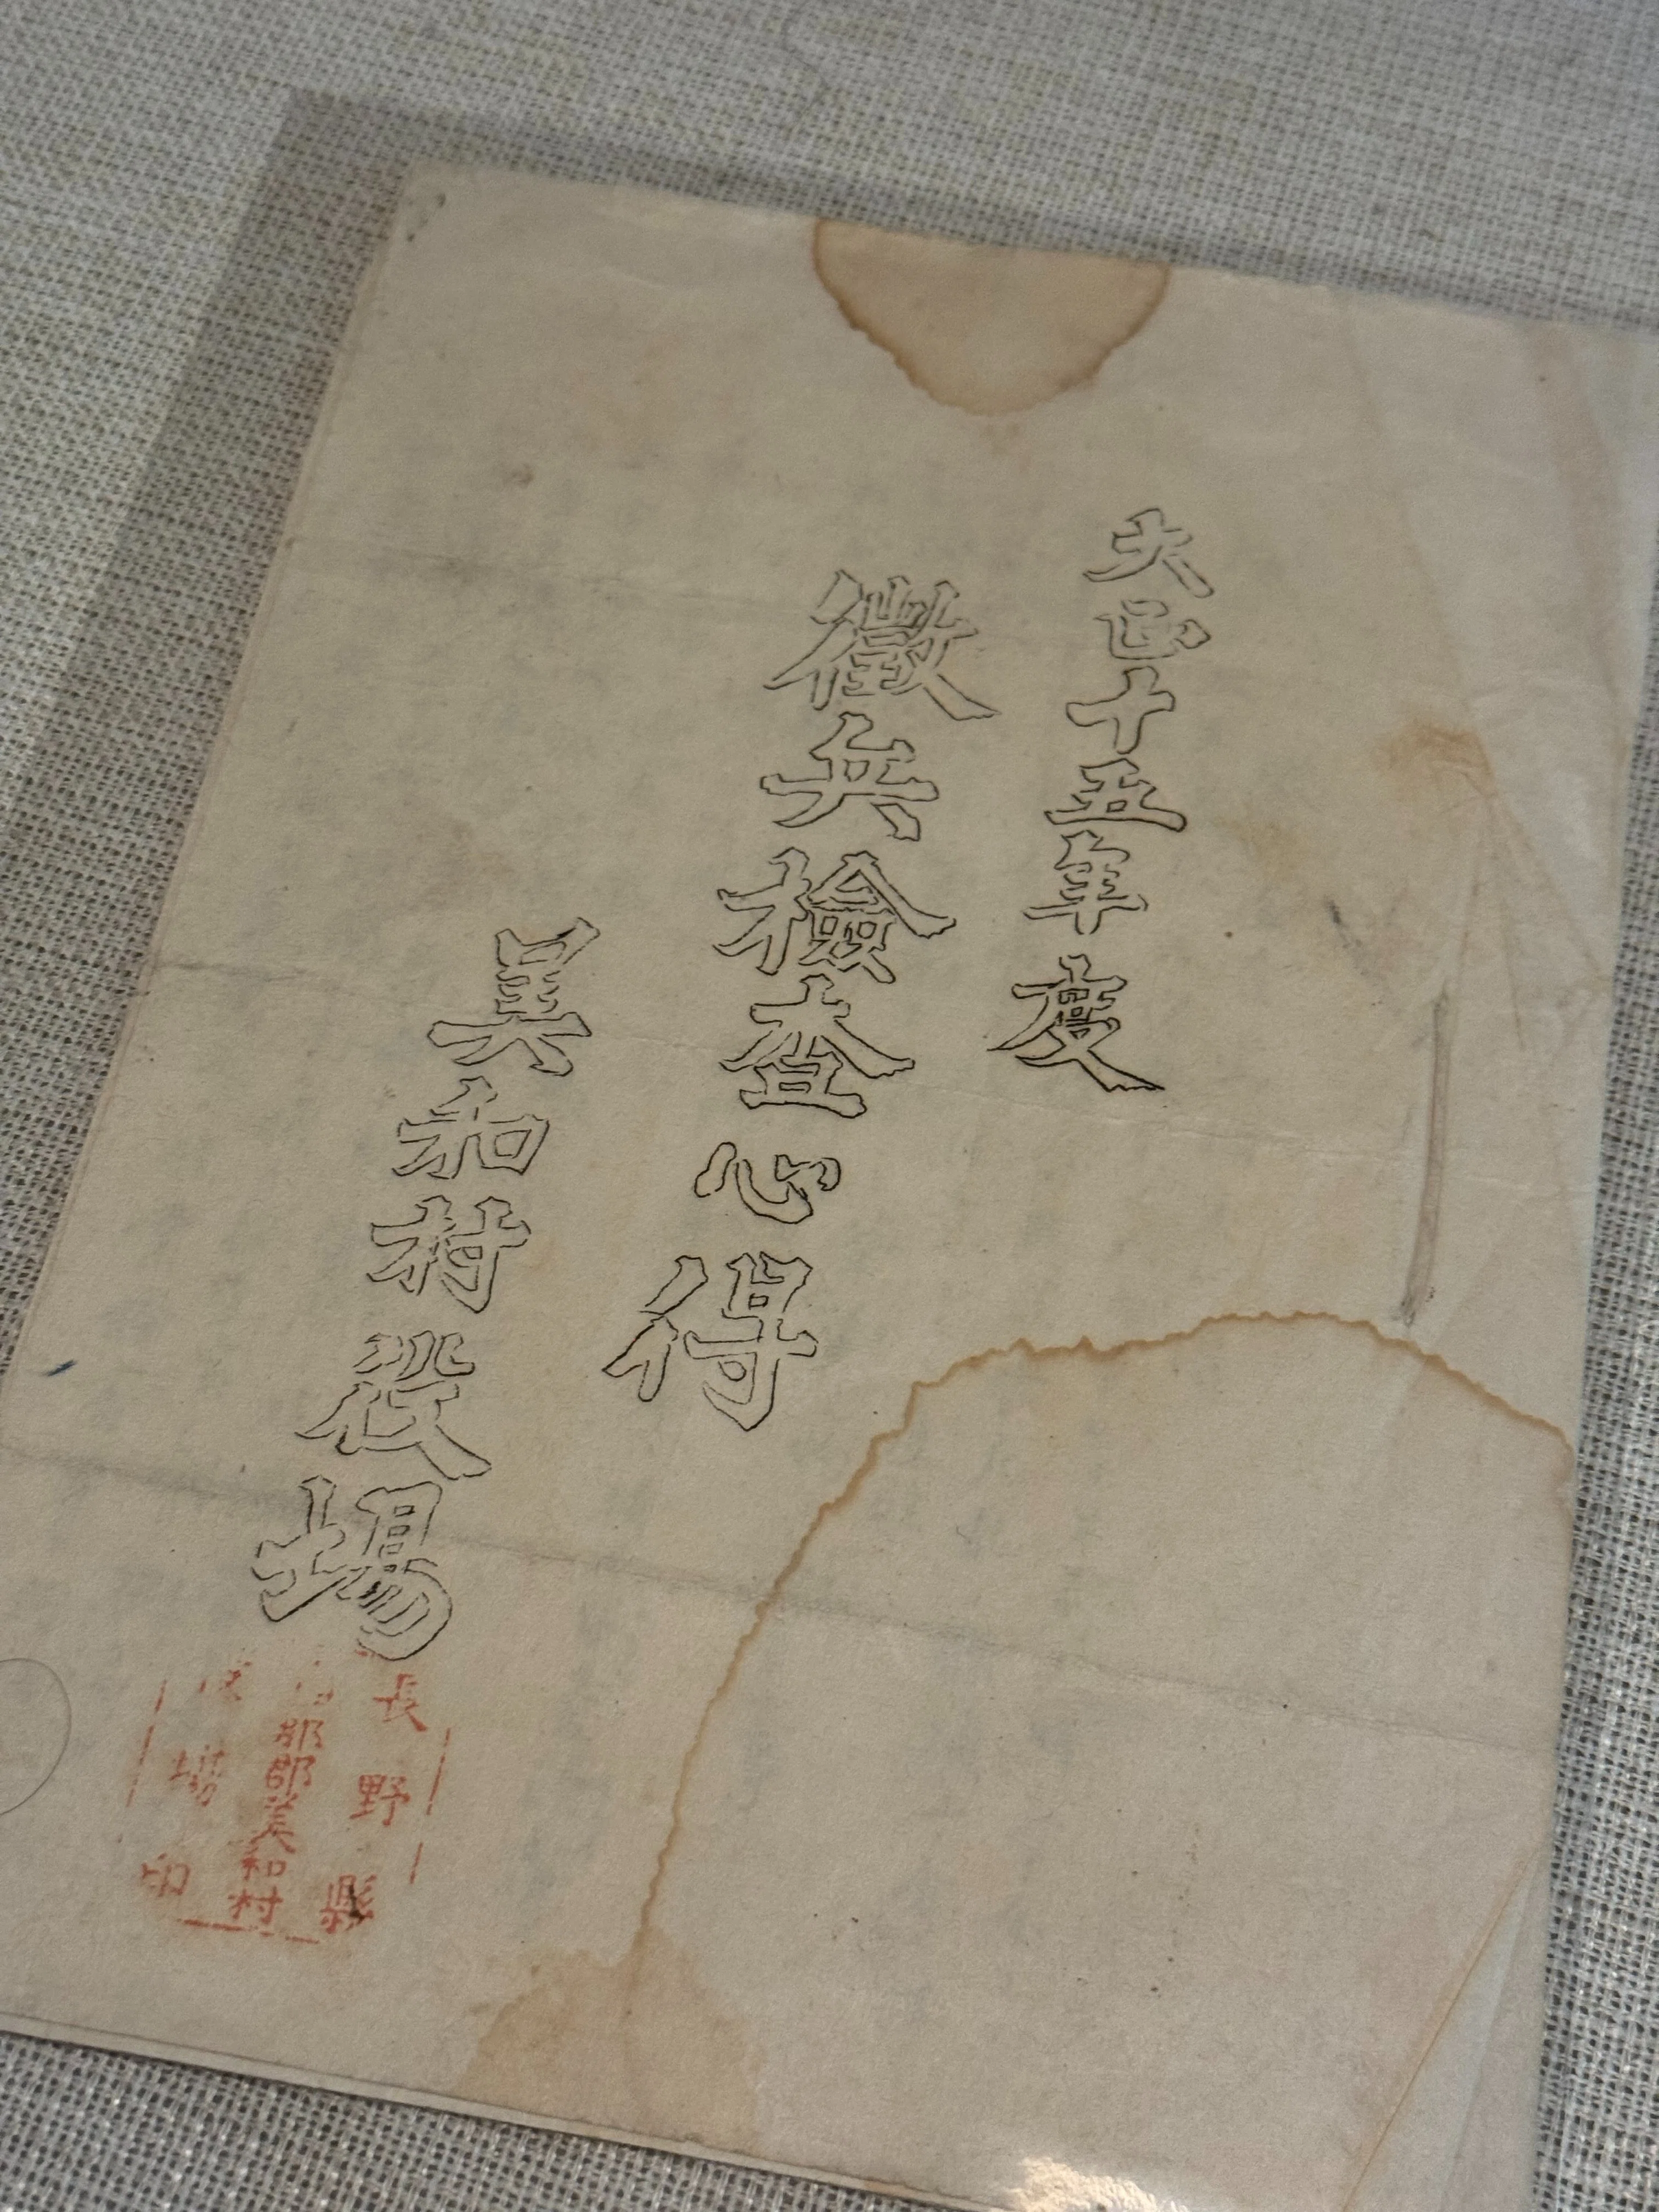 大正十五年度
徵兵檢查心得
美和村役場
長野縣
那郡美和村
役場印